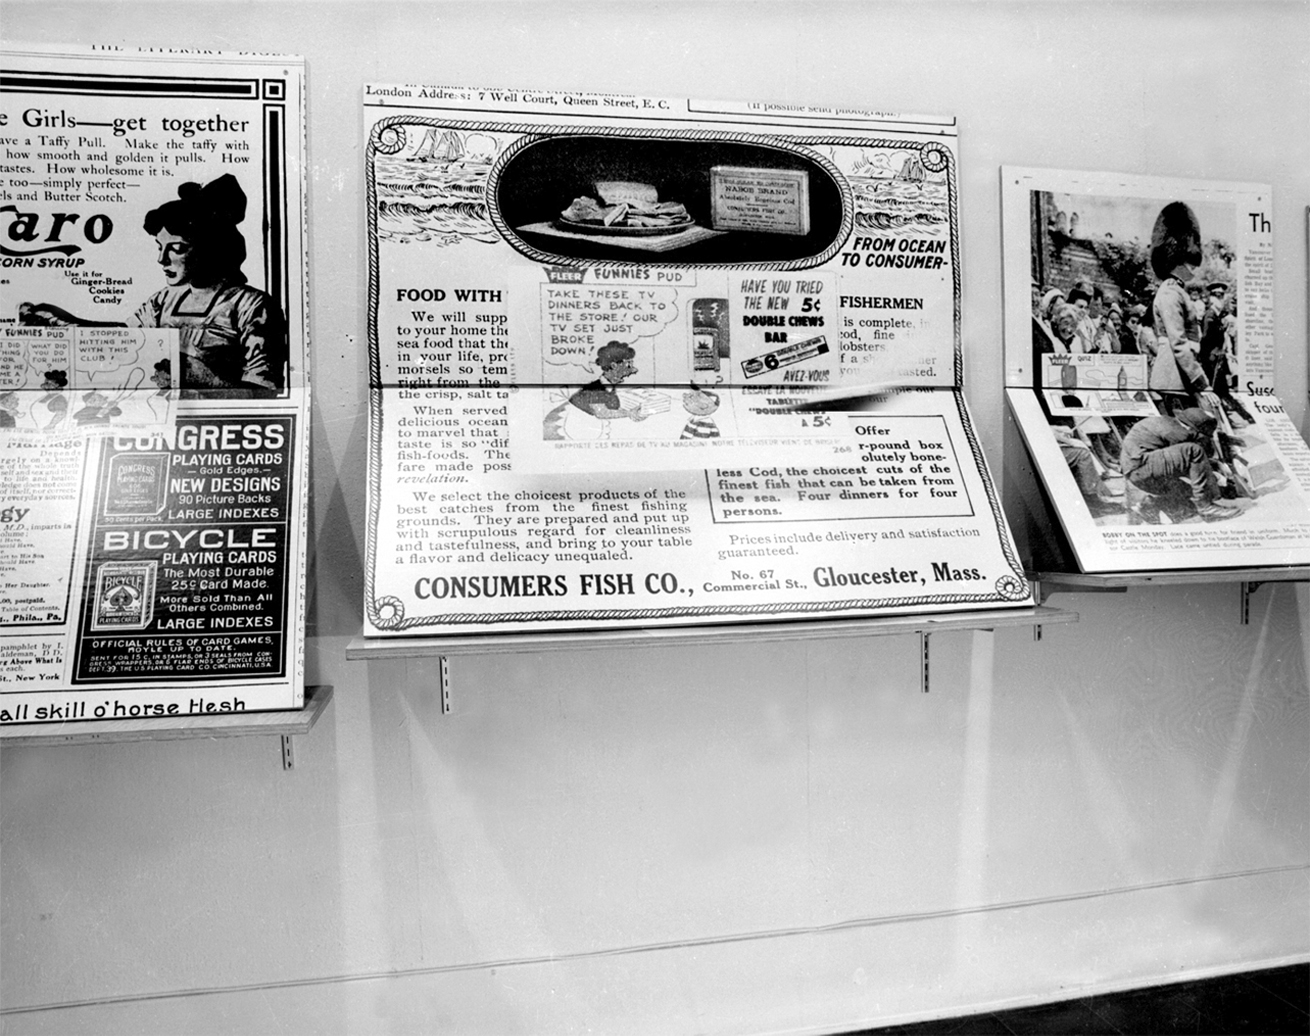 THE LITERARY DIGEST
e Girls—get together
ave a Taffy Pull. Make the taffy with
how smooth and golden it pulls. How
tastes. How wholesome it is.
e too—simply perfect—
els and Butter Scotch.
aro
CORN SYRUP
Use it for
Ginger-Bread
Cookies
Candy
FUNNIES PUD
I DID
WHAT DID
YOU DO
FOR HIM
I STOPPED
HITTING HIM
WITH THIS
CLUB!
?
CONGRESS
PLAYING CARDS
— Gold Edges.—
NEW DESIGNS
90 Picture Backs
LARGE INDEXES
BICYCLE
PLAYING CARDS
The Most Durable
25¢ Card Made.
More Sold Than All
Others Combined.
LARGE INDEXES
OFFICIAL RULES OF CARD GAMES,
HOYLE UP TO DATE.
SENT FOR 15 C. IN STAMPS, OR 3 SEALS FROM CON-
GRESS WRAPPERS, OR 6 FLAP ENDS OF BICYCLE CASES
DEPT. 39. THE U.S. PLAYING CARD CO. CINCINNATI, U.S.A.
gy
M.D., imparts in
olume:
r Daughter.
00, postpaid.
Table of Contents.
g., Phila., Pa,
pamphlet by I.
aldeman, D. D.
rg Above What Is
s each.
St., New York
all skill o' horse flesh
London Address: 7 Well Court, Queen Street, E. C.
(If possible send photograph.)
NABOB BRAND
Absolutely Boneless Cod
FROM OCEAN
TO CONSUMER-
FOOD WITH
We will supp
to your home the
sea food that the
in your life, pre
morsels so tem
right from the
the crisp, salt ta
When served
delicious ocean
to marvel that
taste is so "dif
fish-foods. The
fare made poss
revelation.
FLEER FUNNIES PUD
TAKE THESE TV
DINNERS BACK TO
THE STORE! OUR
TV SET JUST
BROKE
DOWN!
HAVE YOU TRIED
THE NEW 5¢
DOUBLE CHEWS
BAR
6 DOUBLE CHEWS
AVEZ-VOUS
ESSAYÉ LA NOUVELLE
TABLETTE
"DOUBLE CHEWS"
À 5¢
RAPPORTE CES REPAS DE TV AU MAGASIN! NOTRE TÉLÉVISEUR VIENT DE BRISER!
268
FISHERMEN
is complete,
cod, fine
lobsters,
Offer
r-pound box
olutely bone-
less Cod, the choicest cuts of the
finest fish that can be taken from
the sea. Four dinners for four
persons.
We select the choicest products of the
best catches from the finest fishing
grounds. They are prepared and put up
with scrupulous regard for cleanliness
and tastefulness, and bring to your table
a flavor and delicacy unequaled.
Prices include delivery and satisfaction
guaranteed.
CONSUMERS FISH CO., No. 67
Commercial St., Gloucester, Mass.
Th
FLEER QUIZ
Susc
four
BOBBY ON THE SPOT